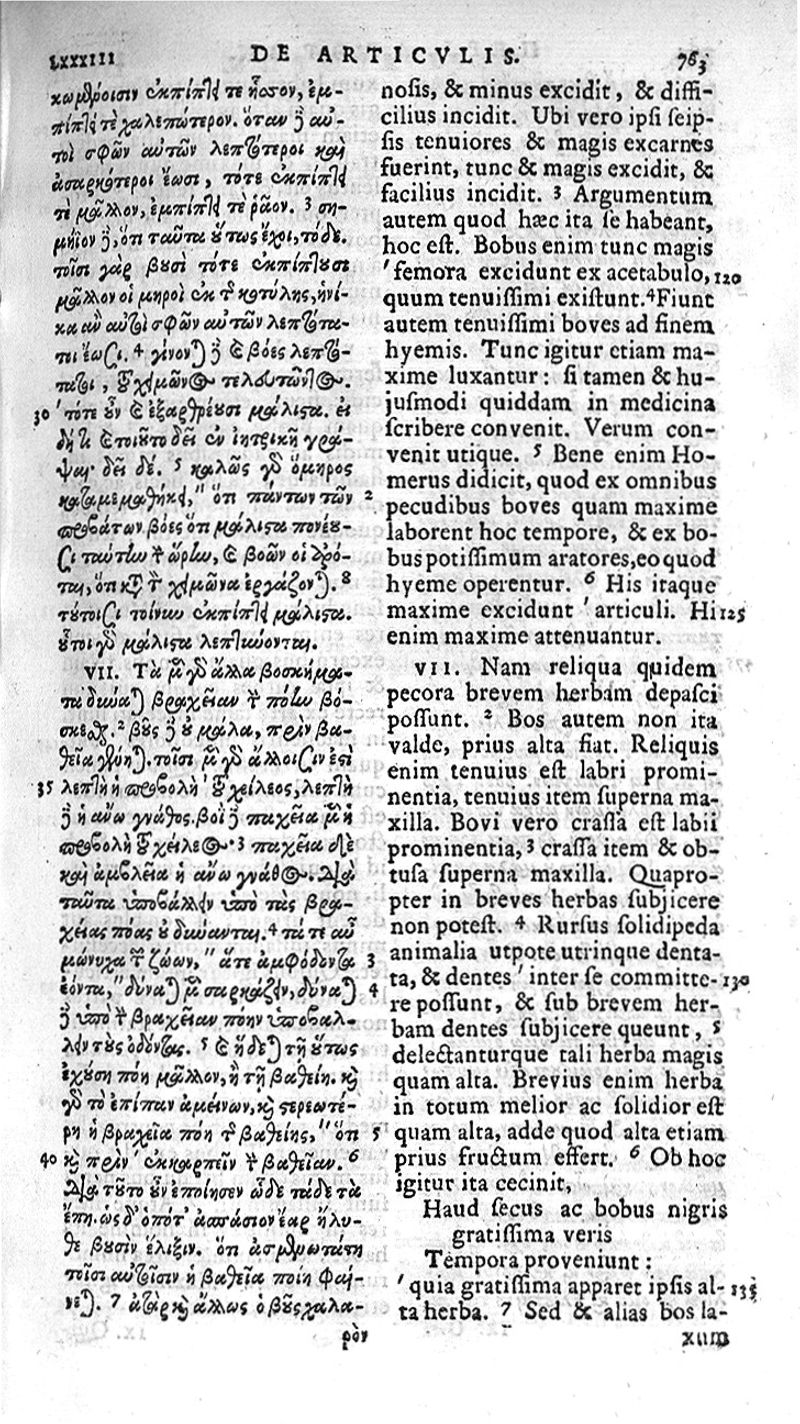 LXXXIII DE ARTICVLIS. 763
κωμένοισιν ἐκπίπτει τε ἧσσον, ἐμ-
πίπτει τε χαλεπώτερον. ὅταν δὲ αὐ-
τοὶ σφῶν αὐτῶν λεπτότεροι καὶ
ἀσαρκότεροι ἔωσι, τότε ἐκπίπτει
τε μᾶλλον, ἐμπίπτει τε ῥᾷον. 3 ση-
μήϊον δὲ, ὅτι ταῦτα οὕτως ἔχει, τόδε.
τοῖσι γὰρ βουσὶ τότε ἐκπίπτουσι
μᾶλλον οἱ μηροὶ ἐκ τῆς κοτύλης, ἡνί-
κα ἂν αὐτοὶ σφῶν αὐτῶν λεπτότα-
τοι ἔωσι. 4 γίνονται δὲ καὶ βόες λεπτό-
τατοι, τοῦ χειμῶνος τελευτῶντος.
30 ' τότε οὖν καὶ ἐξαρθρέουσι μάλιστα. εἰ
δή τι καὶ τοιοῦτο δεῖ ἐν ἰητρικῇ γρά-
ψαι· δεῖ δέ. 5 καλῶς γὰρ ὅμηρος
καταμεμαθήκει, " ὅτι πάντων τῶν 2
προβάτων βόες ὅτι μάλιστα πονέου-
σι ταύτην τὴν ὥρην, καὶ βοῶν οἱ ἀρό-
ται, ὅτι κατὰ τὸν χειμῶνα ἐργάζονται. 8
τούτοισι τοίνυν ἐκπίπτει μάλιστα.
οὗτοι γὰρ μάλιστα λεπτύνονται.
VII. Τὰ μὲν γὰρ ἄλλα βοσκήμα-
τα δύναται βραχεῖαν τὴν ποίην βό-
σκεσθαι. 2 βοῦς δὲ οὐ μάλα, πρὶν βα-
θεῖα γένηται. τοῖσι μὲν γὰρ ἄλλοισιν ἐστὶ
35 λεπτὴ ἡ προβολὴ ' τοῦ χείλεος, λεπτὴ
δὲ ἡ ἄνω γνάθος. βοῒ δὲ παχεῖα μὲν ἡ
προβολὴ τοῦ χείλεος· 3 παχεῖα δὲ
καὶ ἀμβλεῖα ἡ ἄνω γνάθος. διὰ
ταῦτα ὑποβάλλειν ὑπὸ τὰς βρα-
χείας ποίας οὐ δύνανται. 4 τὰ τε αὖ
μώνυχα τῶν ζώων, " ἅτε ἀμφόδοντα 3
ἐόντα, " δύναται μὲν σαρκάζειν, δύναται 4
δὲ ὑπὸ τὴν βραχεῖαν ποίην ὑποβάλ-
λειν τοὺς ὀδόντας. 5 καὶ ἥδεται τῇ οὕτως
ἐχούσῃ ποίῃ μᾶλλον, ἢ τῇ βαθείῃ. καὶ
γὰρ τὸ ἐπίπαν ἀμείνων, καὶ στερεωτέ-
ρη ἡ βραχεῖα ποίη τῆς βαθείης, " ὅτι 5
40 καὶ πρὶν ' ἐκκαρπεῖν τὴν βαθεῖαν. 6
διὰ τοῦτο οὖν ἐποίησεν ὧδε τάδε τὰ
ἔπη. ὡς δ' ὁπότ' ἀσπάσιον ἔαρ ἤλυ-
θε βουσὶν ἕλιξιν. ὅτι ἀσμενωτάτη
τοῖσι αὐτοῖσιν ἡ βαθεῖα ποίη φαί-
νεται. 7 ἀτὰρ καὶ ἄλλως ὁ βοῦς χαλα-
ρὸν
nosis, & minus excidit, & diffi-
cilius incidit. Ubi vero ipsi seip-
sis tenuiores & magis excarnes
fuerint, tunc & magis excidit, &
facilius incidit. 3 Argumentum
autem quod hæc ita se habeant,
hoc est. Bobus enim tunc magis
' femora excidunt ex acetabulo, 120
quum tenuissimi existunt. 4 Fiunt
autem tenuissimi boves ad finem
hyemis. Tunc igitur etiam ma-
xime luxantur: si tamen & hu-
jusmodi quiddam in medicina
scribere convenit. Verum con-
venit utique. 5 Bene enim Ho-
merus didicit, quod ex omnibus
pecudibus boves quam maxime
laborent hoc tempore, & ex bo-
bus potissimum aratores, eo quod
hyeme operentur. 6 His itaque
maxime excidunt ' articuli. Hi 125
enim maxime attenuantur.
VII. Nam reliqua quidem
pecora brevem herbam depasci
possunt. 2 Bos autem non ita
valde, prius alta fiat. Reliquis
enim tenuius est labri promi-
nentia, tenuius item superna ma-
xilla. Bovi vero crassa est labii
prominentia, 3 crassa item & ob-
tusa superna maxilla. Quapro-
pter in breves herbas subjicere
non potest. 4 Rursus solidipeda
animalia utpote utrinque denta-
ta, & dentes ' inter se committe- 130
re possunt, & sub brevem her-
bam dentes subjicere queunt, 5
delectanturque tali herba magis
quam alta. Brevius enim herba
in totum melior ac solidior est
quam alta, adde quod alta etiam
prius fructum effert. 6 Ob hoc
igitur ita cecinit,
Haud secus ac bobus nigris
gratissima veris
Tempora proveniunt:
' quia gratissima apparet ipsis al- 135
ta herba. 7 Sed & alias bos la-
xum